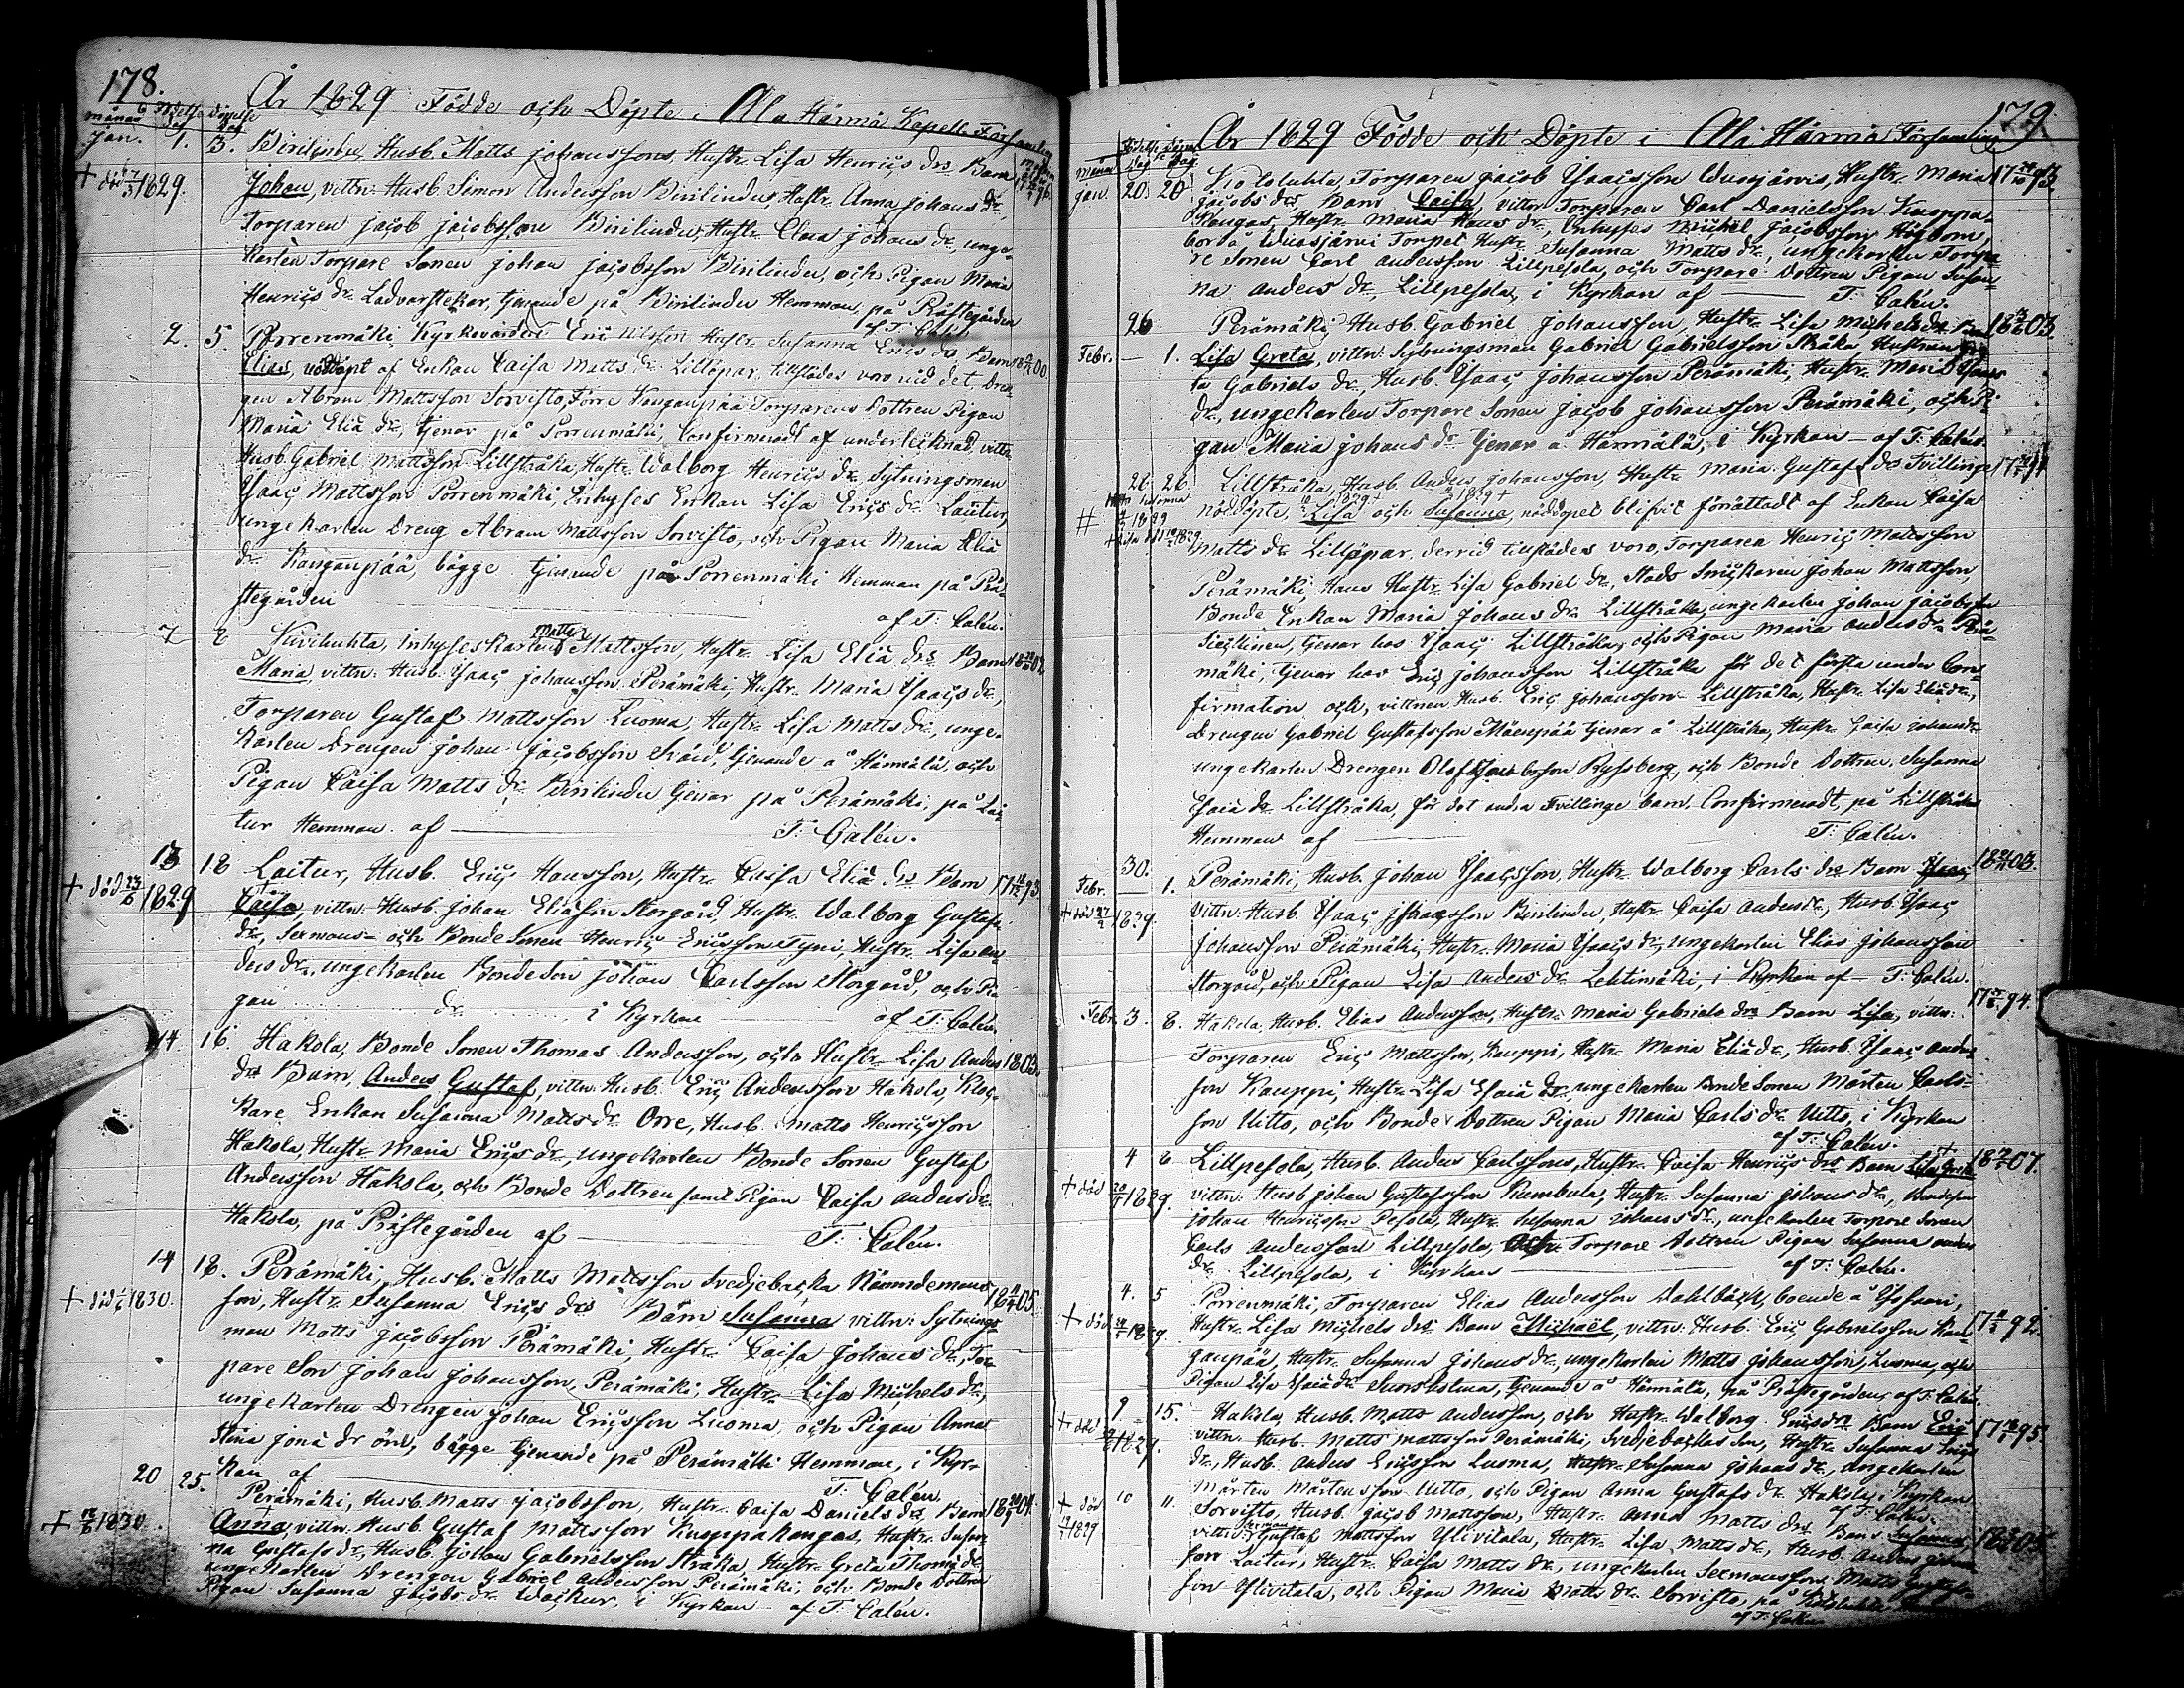 178.
År 1829 Födde och Döpte i Ala Härmä Kapells Församling
månad dag dag
Jan. 1. 3. Birilindu, Husb. Matts Johanssons, Hustr. Lisa Henriçs dr Barn
+ död 1829. Johan, vittn: Husb. Simon Andersson Birilindu, Hustr. Anna Johans dr
Torparen Jacob Jacobsson Birilindu, Hustr. Johans dr, unge-
karlen Torpare Sonen Johan Jacobsson Birilindu, och Pigan Maria
Henriçs dr tjenande på Birilindu Hemman, på Prästegården
af T. Calén
2. 5. Porrenmäki, Kyrkovärden Eric Hustr. Susanna Erics dr Barn
Elias, nöddöpt af Enkan Caisa Matts dr Lillöpar, tillstädes voro vid det, Dren-
gen Abram Mattsson Sorvisto, Torparens Dottren Pigan
Maria Eliä dr, tjenar på Porrenmäki, Confirmeradt af undertecknad, vittn:
Husb. Gabriel Mattsson Lillstråka, Hustr. Walborg Henriçs dr, Sytningsman
Isaaç Mattsson Porrenmäki, Inhyses Enkan Lisa Eriçs dr Laitur,
ungekarlen Dreng Abram Mattsson Sorvisto, och Pigan Maria Eliä
dr Kangaupää, bägge tjenande på Porrenmäki Hemman på Prä-
stegården af T. Calén.
7 8 inhyseskarlen Matts Mattsson, Hustr. Lisa Eliä drs Barn
Maria, vittn: Husb. Isaaç Johansson Perämäki, Hustr. Maria Isaaçs dr,
Torparen Gustaf Mattsson Luoma, Hustr. Lisa Matts dr, unge-
karlen Drengen Johan Jacobsson tjenande å Härmälä, och
Pigan Caisa Matts dr Birilindu tjenar på Perämäki, på Lai-
tur Hemman af T. Calén.
13 18 Laitur, Husb. Eriç Hansson, Hustr. Caisa Eliä drs Barn
+ död 1829 Caisa, vittn: Husb. Johan Eliasson Storgård, Hustr. Walborg Gustafs
dr, Sexmans- och Bonde Sonen Henriç Ericsson Tyni, Hustr. Lisa An-
ders dr, ungekarlen Bondeson Johan Carlsson Storgård, och Pi-
gan dr i Kyrkan af T. Calén.
14 16. Hakola, Bonde Sonen Thomas Andersson, och Hustr. Lisa Anders 1803.
drs Barn, Anders Gustaf, vittn: Husb. Eriç Andersson Hakola, Kloc-
kare Enkan Susanna Matts dr Orre, Husb. Matts Henriçsson
Hakola, Hustr. Maria Eriçs dr, ungekarlen Bonde Sonen Gustaf
Andersson Hakola, och Bonde Dottren samt Pigan Caisa Anders dr
Hakola, på Prästegården af T. Calén.
14 18. Perämäki, Husb. Matts Mattsson Svedjebacka Nämndemans
+ död 1830. son, Hustr. Susanna Eriçs drs Barn Susanna vittn: Sytnings-
man Matts Jacobsson Perämäki, Hustr. Caisa Johans dr, Tor-
pare Son Johan Johansson, Perämäki, Hustr. Lisa Michels dr,
ungekarlen Drengen Johan Eriçsson Luoma, och Pigan Anna
Stina Jona dr bägge tjenande på Perämäki Hemman, i Kyr-
kan af T. Calén.
20 25. Perämäki, Husb. Matts Jacobsson, Hustr. Caisa Daniels drs Barn
+ 1830. Anna, vittn: Husb. Gustaf Mattsson Kuoppakangas, Hustr. Susan-
na Gustafs dr, Husb. Johan Gabrielsson Stråka, Hustr. Greta Thomæ dr
ungekarlen Drengen Gabriel Andersson Perämäki, och Bonde Dottren
Pigan Susanna Jacobs dr Wackur, i Kyrkan af T. Calén.
179.
År 1829 Födde och Döpte i Ala Härmä Församling
Jan. 20. 20 Torparen Jacob Isaaçsson Wuosjärvi, Hustr. Maria
Jacobs drs Barn Caisa, vittn: Torparen Carl Danielsson Kuoppa-
kangas, Hustr. Maria Hans dr, Inhyses Michel Jacobsson Högbom,
bor å Wuosjärvi Torpet Hustr. Susanna Matts dr, ungekarlen Torpa-
re Sonen Carl Andersson Lillpesola, och Torpare Dottren Pigan Susan-
na Anders dr, Lillpesola, i Kyrkan af T. Calén.
26 Perämäki, Husb. Gabriel Johansson, Hustr. Lisa Michels drs Barn
Febr. 1. Lisa Greta, vittn: Sytningsman Gabriel Gabrielsson Stråka Hustrun
Gabriels dr, Husb. Isaaç Johansson Perämäki, Hustr. Maria Isaaçs
dr, ungekarlen Torpare Sonen Jacob Johansson Perämäki, och Pi-
gan Maria Johans dr tjenar å Härmälä, i Kyrkan af T. Calén.
26 26 Lillstråka, Husb. Anders Johansson, Hustr. Maria Gustafs drs Tvillingar
nöddöpte, Lisa och Susanna, nöddopet blifvit förrättadt af Enkan Caisa
Matts dr Lillöpar, dervid tillstädes voro, Torparen Henriç Mattsson
Perämäki, Hans Hustr. Lisa Gabriel dr, Stads Snickaren Johan Mattsson,
Bonde Enkan Maria Johans dr Lillstråka, ungekarlen Johan Jacobsson
tjenar hos Isaaç Lillstråka, och Pigan Maria Anders dr Perä-
mäki, tjenar hos Eriç Johansson Lillstråka för det första under Con-
firmation och, vittnen Husb. Eriç Johansson Lillstråka, Hustr. Lisa Eliä dr,
Drengen Gabriel Gustafsson Mäenpää tjenar å Lillstråka, Hustr. Caisa Johans dr
ungekarlen Drengen Olof Ryssberg, och Bonde Dottren Susanna
Esaiä dr Lillstråka, för det andra Tvillinge barn. Confirmeradt, på Lillstråka
Hemman af T. Calén.
30. Perämäki, Husb. Johan Isaaçsson, Hustr. Walborg Carls drs Barn Isaaç,
Febr. 1. vittn: Husb. Isaaç Isaaçsson Birilindu, Hustr. Caisa Anders dr, Husb. Isaaç
Johansson Perämäki, Hustr. Maria Isaaçs dr, ungekarlen Elias Johansson
Storgård, och Pigan Lisa Anders dr Lehtimäki, i Kyrkan af T. Calén.
Febr. 3. 8. Hakola, Husb. Elias Andersson, Hustr. Maria Gabriels drs Barn Lisa, vittn:
Torparen Eriç Mattsson, Kauppi, Hustr. Maria Eliä dr, Husb. Isaaç Anders-
son Kauppi, Hustr. Lisa Esaiä dr, ungekarlen Bonde Sonen Mårten Carls-
son Uitto, och Bonde Dottren Pigan Maria Carls dr Uitto, i Kyrkan
af T. Calén.
4 8 Lillpesola, Husb. Anders Carlssons, Hustr. Caisa Henriçs drs Barn Lisa Greta
+ död vittn: Husb. Johan Gustafsson Rumbala, Hustr. Susanna Johans dr, Bondeson
Johan Henriçsson Pesola, Hustr. Susanna Johans dr, ungekarlen Torpare Sonen
Carls Andersson Lillpesola, Torpare Dottren Pigan Susanna Anders
dr Lillpesola, i Kyrkan af T. Calén.
4. 5 Porrenmäki, Torparen Elias Andersson Dahlbäck, boende å
+ död Hustr. Lisa Michels drs Barn Michaël, vittn: Husb. Eriç Gabrielsson Kan-
gaupää, Hustr. Susanna Johans dr, ungekarlen Matts Johansson, Luoma, och
Pigan Lisa Esaiä dr tjenande å Härmälä, på Prästegården, af T. Calén.
9. 15. Hakola, Husb. Matts Andersson, och Hustr. Walborg Eriçs drs Barn Eriç
+ död vittn: Husb. Matts Mattsson Perämäki, Svedjebackas Son, Hustr. Susanna Eriçs
dr, Husb. Anders Eriçsson Luoma, Hustr. Susanna Johans dr, ungekarlen
Mårten Mårtensson Uitto, och Pigan Anna Gustafs dr Hakola, i Kyrkan
af T. Calén.
+ död 10 11. Sorvisto, Husb. Jacob Mattsson, Hustr. Anna Matts drs Barn Susanna,
1829 vittn: Gustaf Mattsson Ylivitala, Hustr. Lisa Matts dr, Husb. Anders Johans-
son Laitur, Hustr. Caisa Matts dr, ungekarlen Sexmansson Matts Gustafs-
son Ylivitala, och Pigan Maria Matts dr Sorvisto, på
af T. Calén